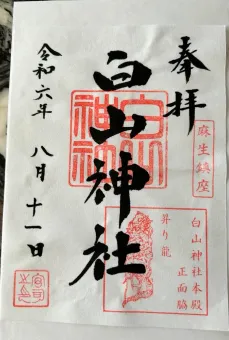 奉拝
麻生鎮座
白山神社本殿
正面脇
昇り龍
白山神社
令和六年 八月 十一日